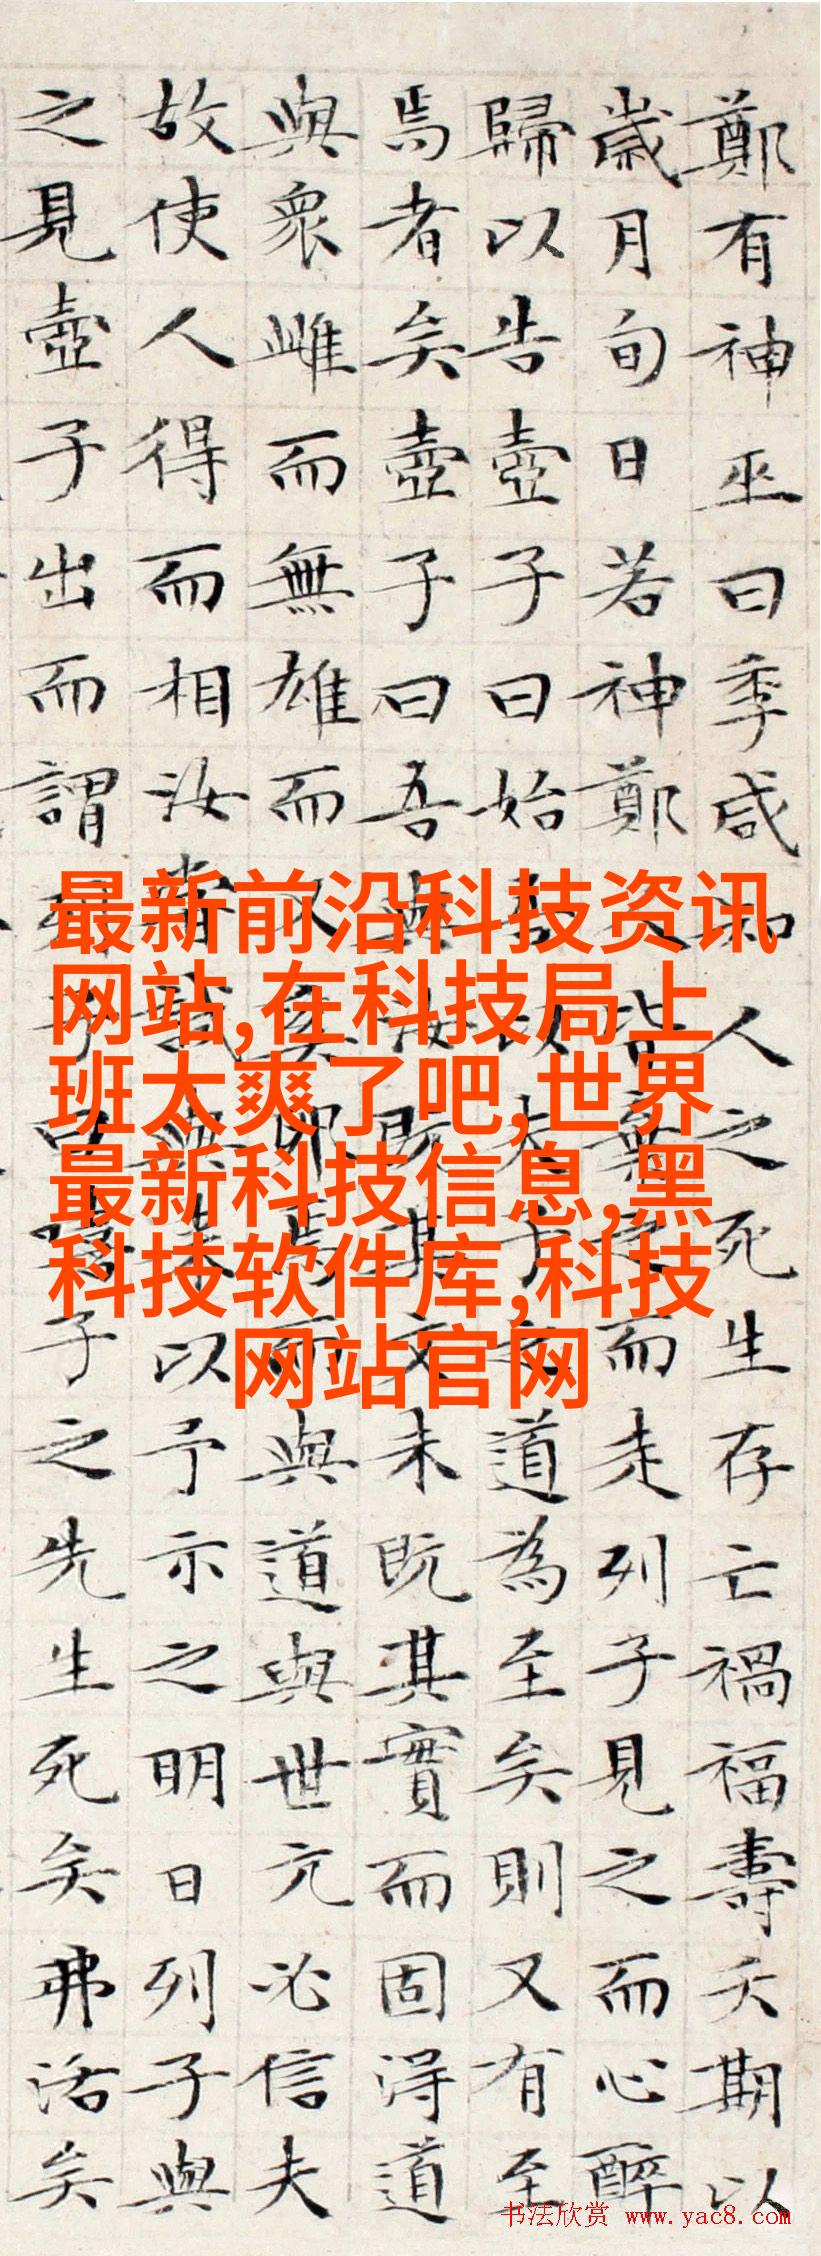 鄭有神巫曰季咸知人之死生存亡禍福壽夭期以
歲月旬日若神鄭人皆棄之而走列子見之而心醉
歸以告壺子曰始吾以夫子之道為至矣則又有至
焉者矣壺子曰吾與汝既其文未既其實而固得道
與衆雌而無雄而又奚卵焉而與道與世亢必信夫
故使人得而相汝嘗試與来以予示之明日列子與
之見壺子出而謂列子曰嘻子之先生死矣弗活矣
最新前沿科技资讯
网站,在科技局上
班太爽了吧,世界
最新科技信息,黑
科技软件库,科技
网站官网
书法欣赏 www.yac8.com